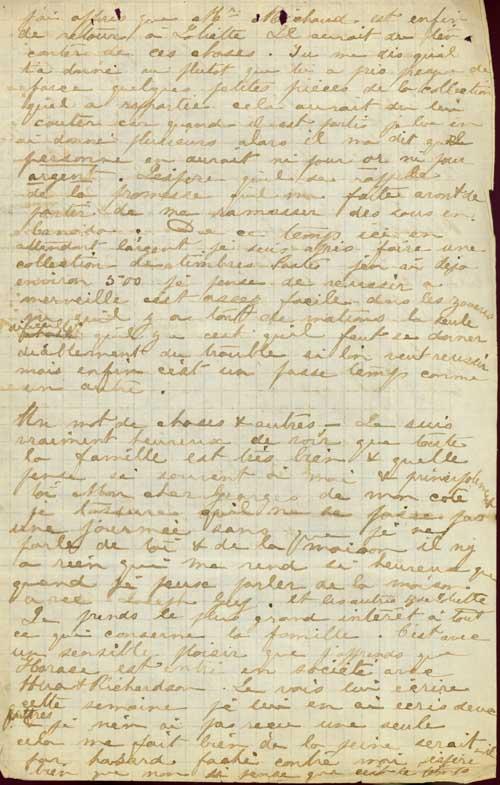 j'ai appris que Mr Michaud est enfin
de retour a Joliette Il aurait du
conter de ces choses. Tu me dis qu'il
t'a donné ou plutot que tu a pris presque de
force quelques petites pièces de la collection
qu'il a rapportée cela aurait du lui
couter car quand il est parti je lui en
ai donné plusieurs alors il m'a dit que
personne en aurait ni pour or ni pour
argent. J'espère qu'il se rappelle
de la promesse qu'il m'a faite avant de
partir de me ramasser des sous en
Canada. De ce temps ici en
attendant l'argent je suis apris faire une
collection de timbres Postes j'en ai deja
environ 500 je pense de reussir a
merveille c'est assez facile dans les zouaves
vu qu'il y a tant de nations la seule
qu'il y a c'est qu'il faut se donner
diablement du trouble si l'on veut reussir
mais enfin c'est un passe temps comme
un autre.
Un mot de choses & autres - Je suis
vraiment heureux de voir que toute
la famille est très bien & quelle
pense si souvent à moi & principalement
toi Mon cher Georges de mon coté
je t'assure qu'il ne se passe pas
une journée sans que je ne
parle de toi & de la maison il n'y
a rien qui me rend si heureux que
quand je peux parler de la maison
avec Joseph Guy. et les autres de Joliette
Je prends le plus grand interêt à tout
ce qui conserne la famille. C'est avec
un sensible plaisir que j'apprends que
Horace est entré en société avec
Richardson. Je vais lui écrire
cette semaine je lui en ai ecris deux
autres je n'en ai pas reçu une seule
cela me fait bien de la peine serait-il
par hasard faché contre moi j'espère
bien que non je pense que c'est le temps